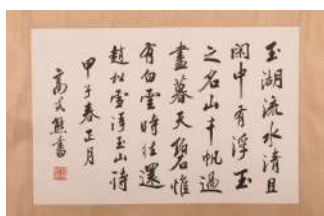 玉湖流水清且
闲中有浮玉
之名山千帆過
盡暮天碧惟
有白雲時往還
趙松雪浮玉山诗
甲子春正月
高式熊書